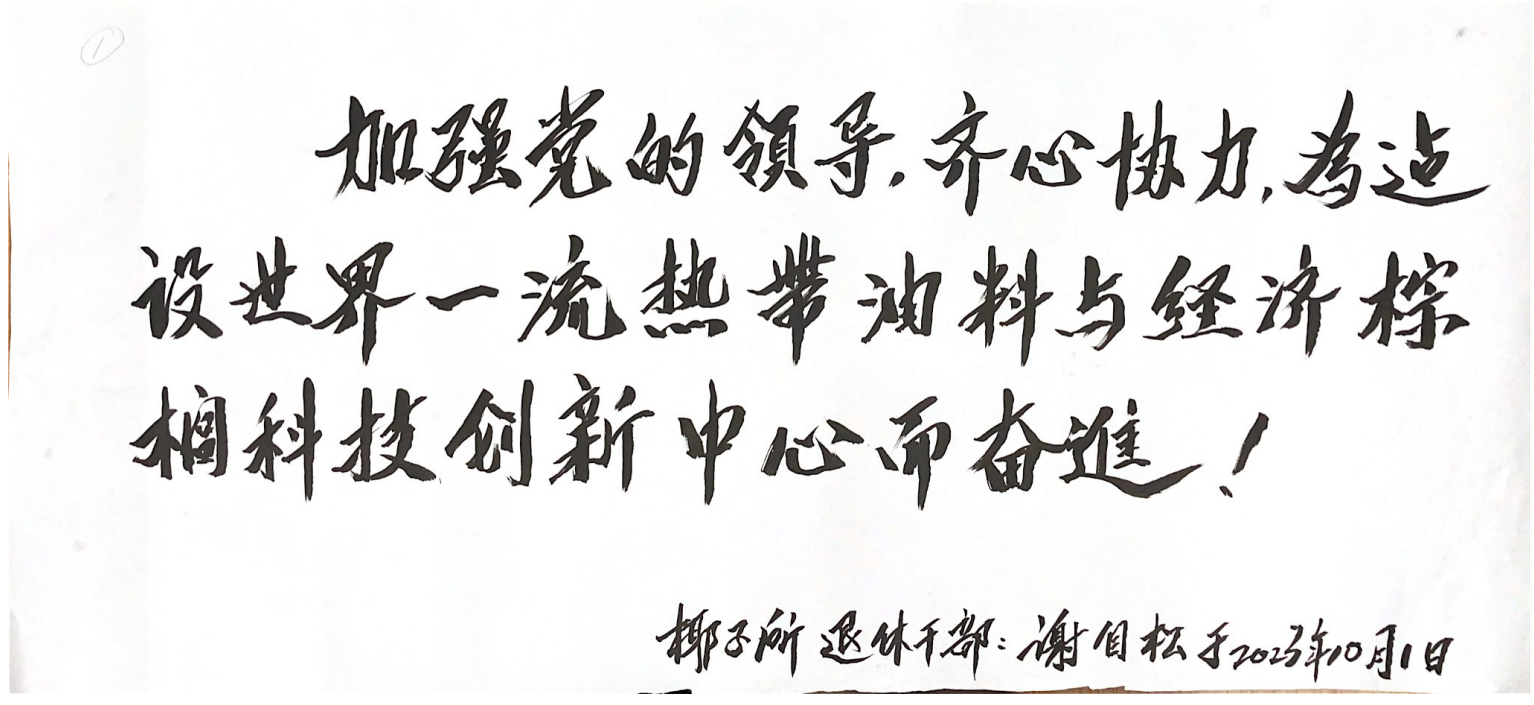 ①
加强党的领导，齐心协力，為迠
设世界一流热带油料与经济棕
榈科技创新中心而奋進！
椰子所退休干部：谢自松于2023年10月1日